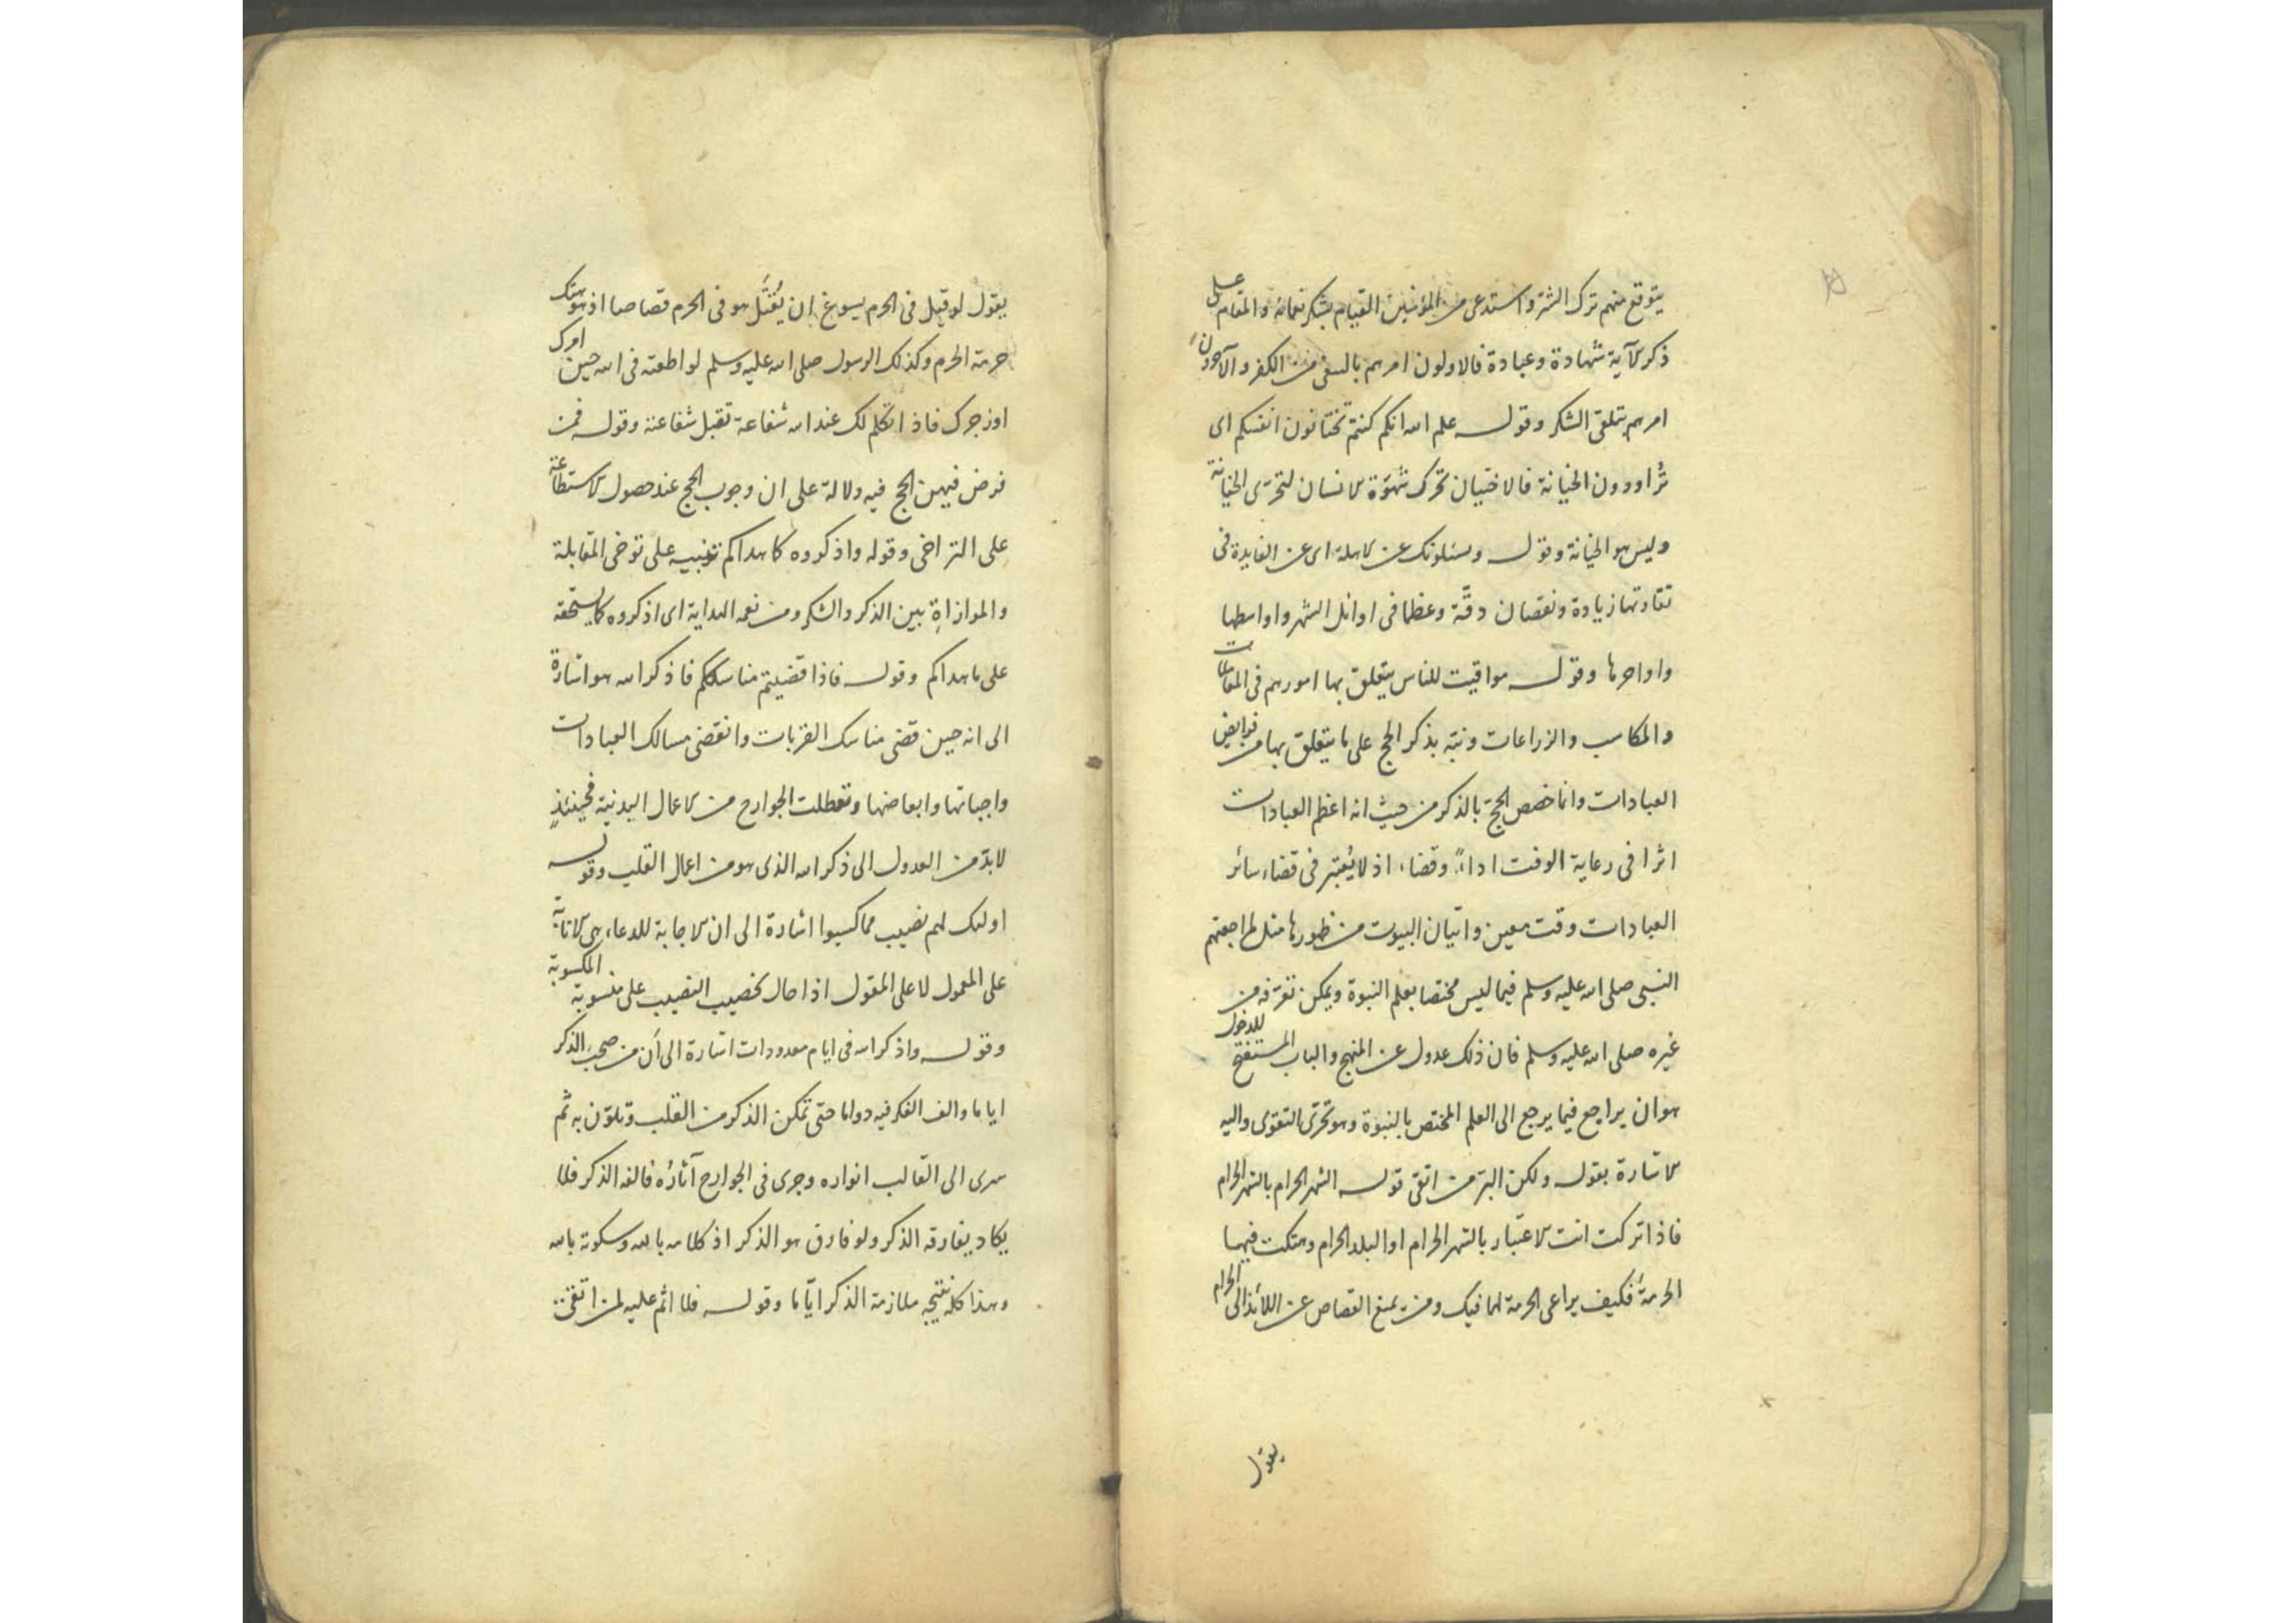 يتوقع منهم ترك الشر واستدعى من المؤمنين القيام بشكر نعمائه والمقام على
ذكر الآية شهادة وعبادة فالاولون امرهم بالسعى من الكفر والآخرون
امرهم بتلقى الشكر وقوله علم الله انكم كنتم تختانون انفسكم اى
تُراودون الخيانة فالاختيان تحرك شهوة الانسان لتحرّى الخيانة
وليس هو الخيانة وقوله ويسئلونك عن الاهلة اى عن الفايدة فى
تفاوتها زيادة ونقصان دقّة وعظما فى اوائل الشهر واواسطها
واواخرها وقوله مواقيت للناس يتعلق بها امورهم فى المعاملات
والمكاسب والزراعات ونبّه بذكر الحج على ما يتعلق بها من فرايض
العبادات وانما خصص الحجّ بالذكر من حيث انه اعظم العبادات
اثرا فى رعاية الوقت اداءً وقضاء اذ لا يُعتبر فى قضاء سائر
العبادات وقت معين واتيان البيوت من ظهورها مثل لمراجعتهم
النبى صلى الله عليه وسلم فيما ليس مختصا بعلم النبوة ويمكن تعرّفه من
غيره صلى الله عليه وسلم فان ذلك عدول عن المنهج والباب المستفتح للدخول
هو ان يراجع فيما يرجع الى العلم المختص بالنبوة وهو تحرّى التقوى واليه
الاشارة بقوله ولكن البرّ من اتقى قوله الشهر الحرام بالشهر الحرام
فاذا تركت انت الاعتبار بالشهر الحرام او البلد الحرام وهتكت فيهما
الحرمة فكيف يراعى الحرمة لما فيك ومن يمنع القصاص عن اللائذ الى الحرام
يقول
يقول لو قيل فى الحرم يسوغ ان يُقتَل هو فى الحرم قصاصا اذ هو هتك
حرمة الحرم وكذلك الرسول صلى الله عليه وسلم لو اطعته فى الله حين امرك
او زجرك فاذا تكلم لك عند الله شفاعة تقبل شفاعته وقوله فمن
فرض فيهن الحج فيه دلالة على ان وجوب الحج عند حصول الاستطاعة
على التراخى وقوله واذكروه كما هداكم تنبيه على توخى المقابلة
والموازاة بين الذكر والشكر ومن نعمه الهداية اى اذكروه كما يستحقه
على ما هداكم وقوله فاذا قضيتم مناسككم فاذكروا الله هو اشارة
الى انه حين قضى مناسك القربات وانقضى مسالك العبادات
واجباتها وابعاضها وتعطلت الجوارح من الاعمال البدنية فحينئذٍ
لا بدّ من العدول الى ذكر الله الذى هو من اعمال القلب وقوله
اولئك لهم نصيب مما كسبوا اشارة الى ان الاجابة للدعاء هى الاثابة
على المعمول لا على المقول اذا حال تخصيب النصيب على منسوبة المكسوبة
وقوله واذكروا الله فى ايام معدودات اشارة الى أن من صحب الذكر
اياما والف الفكر فيه دواما حتى تمكن الذكر من القلب وتلوّن به ثم
سرى الى القالب انواره وجرى فى الجوارح آثارُه فالفه الذكر فلا
يكاد يفارقه الذكر ولو فارق هو الذكر اذ كلامه بالله وسكوته بالله
وهذا كله نتيجه ملازمة الذكر ايّاما وقوله فلا اثم عليه لمن اتقى